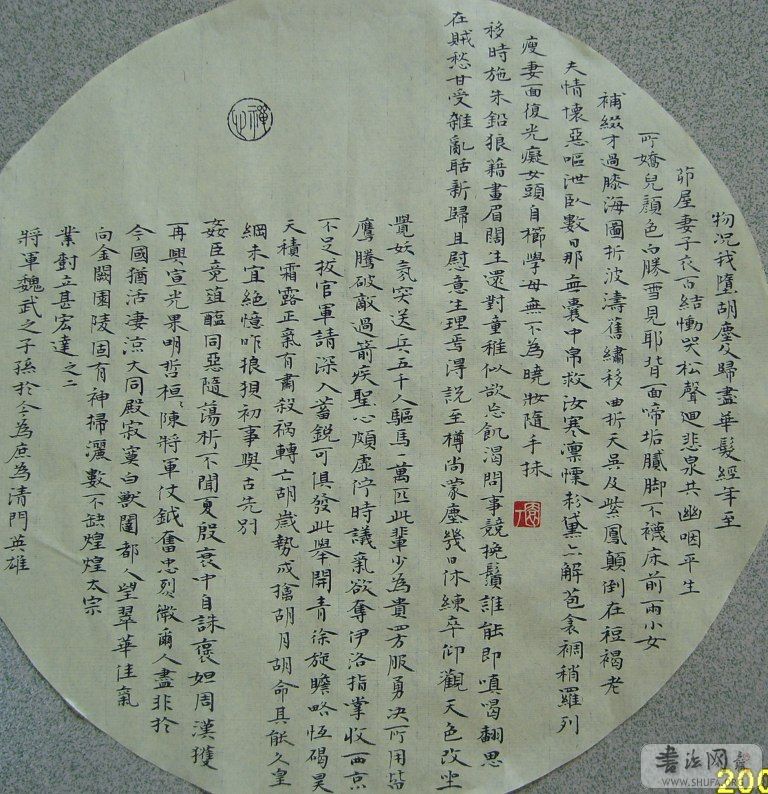 物况我墮胡塵及歸盡華髮經年至
茆屋妻子衣百結慟哭松聲迴悲泉共幽咽平生
所嬌兒顏色白勝雪見耶背面啼垢膩脚不襪床前兩小女
補綴才過膝海圖拆波濤舊繡移曲折天吳及紫鳳顛倒在裋褐老
夫情懷惡嘔泄臥數日那無囊中帛救汝寒凛慄粉黛亦解苞衾裯稍羅列
瘦妻面復光癡女頭自櫛學母無不為曉妝隨手抹
移時施朱鉛狼籍畫眉闊生還對童稚似欲忘飢渴問事競挽鬚誰能即嗔喝翻思
在賊愁甘受雜亂聒新歸且慰意生理焉得説至樽尚蒙塵幾日休練卒仰觀天色改坐
覺妖氛突送兵五千人驅馬一萬匹此輩少為貴四方服勇決所用皆
鷹騰破敵過箭疾聖心頗虛佇時議氣欲奪伊洛指掌收西京
不足拔官軍請深入蓄銳可俱發此舉開青徐旋瞻略恆碣昊
天積霜露正氣有肅殺禍轉亡胡歲勢成擒胡月胡命其能久皇
綱未宜絕憶昨狼狽初事與古先別
姦臣竟菹醢同惡隨蕩析不聞夏殷衰中自誅褒妲周漢獲
再興宣光果明哲桓〻陳將軍仗鉞奮忠烈微爾人盡非於
今國猶活淒涼大同殿寂寞白獸闥都人望翠華佳氣
向金闕園陵固有神掃灑數不缺煌煌太宗
業對立甚宏達之二
將軍魏武之子孫於今為庶為清門英雄
書法网
WWW.SHUFA.ORG
200